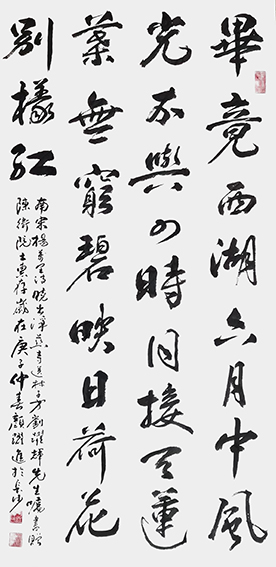 畢竟西湖六月中風
光不與四時同接天蓮
葉無窮碧映日荷花
別樣紅
南宋楊萬里詩曉出淨慈寺送林子方劉躍輝先生囑書贈
院士惠存歲在庚子仲春顏躍進於長沙